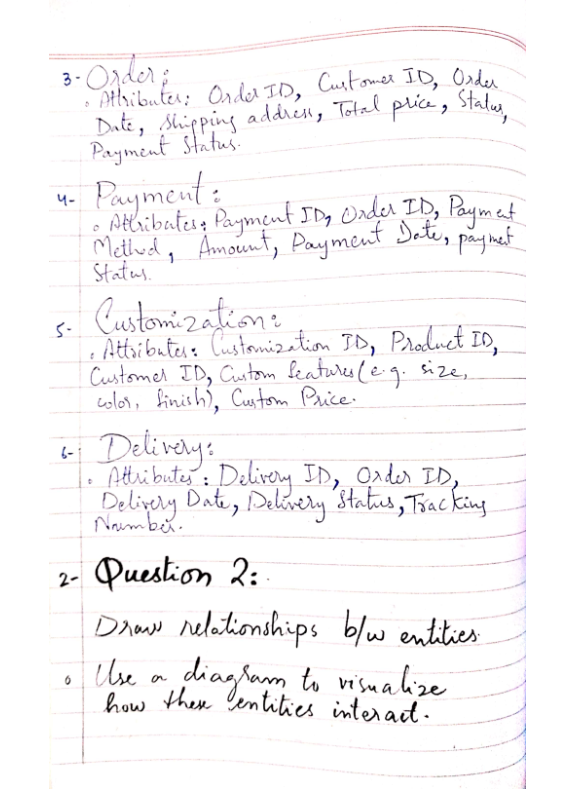 3- Order:
◦ Attributes: Order ID, Customer ID, Order
Date, Shipping address, Total price, Status,
Payment Status.
4- Payment:
◦ Attributes: Payment ID, Order ID, Payment
Method, Amount, Payment Date, paymet
Status.
5- Customization:
◦ Attributes: Customization ID, Product ID,
Customer ID, Custom features (e.g. size,
color, finish), Custom Price.
6- Delivery:
◦ Attributes: Delivery ID, Order ID,
Delivery Date, Delivery Status, Tracking
Number.
2- Question 2:
Draw relationships b/w entities.
◦ Use a diagram to visualize
how these entities interact.